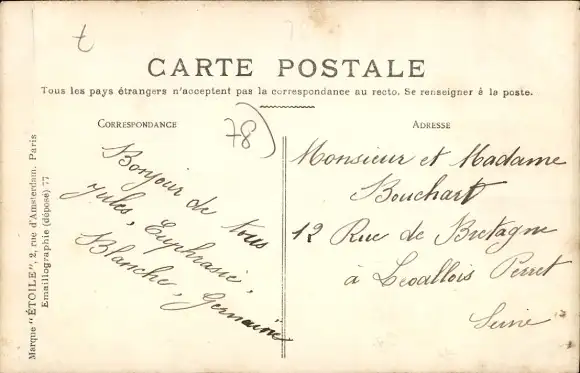 t
CARTE POSTALE
Tous les pays étrangers n'acceptent pas la correspondance au recto. Se renseigner à la poste.
CORRESPONDANCE
78
Bonjour de tous
Jules, Euphrasie,
Blanche, Germaine
ADRESSE
Monsieur et Madame
Bouchart
12 Rue de Bretagne
à Levallois Perret
Seine
Marque "ÉTOILE", 2, rue d'Amsterdam. Paris
Emaillographie (déposé) 77